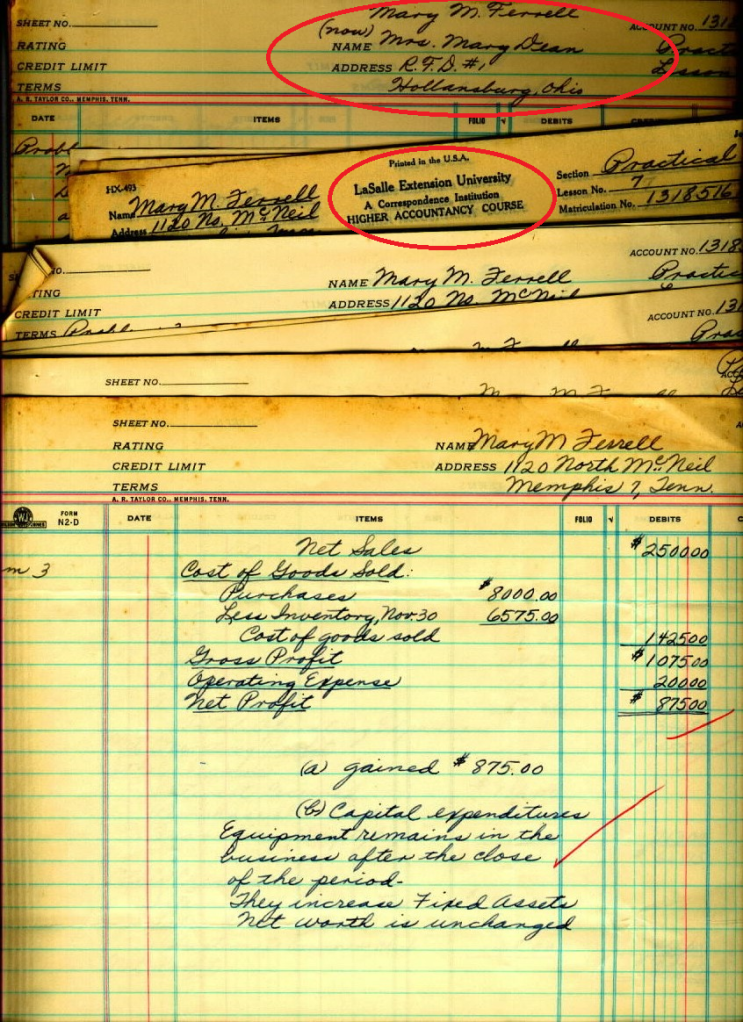 Mary M. Ferrell
SHEET NO. (now) ACCOUNT NO. 131
RATING NAME Mrs. Mary Dean Pract
CREDIT LIMIT ADDRESS R.F.D. #1 Lesson
TERMS Hollansburg, Ohio
A. R. TAYLOR CO., MEMPHIS, TENN.
DATE ITEMS FOLIO √ DEBITS
Probl
Printed in the U.S.A.
HX-493 LaSalle Extension University Section Practical
Name Mary M. Ferrell A Correspondence Institution Lesson No. 7
Address 1120 No. McNeil HIGHER ACCOUNTANCY COURSE Matriculation No. 1318516
NO. ACCOUNT NO. 1318
TING NAME Mary M. Ferrell Practic
CREDIT LIMIT ADDRESS 1120 No. McNeil
TERMS ACCOUNT NO. 131
Prac
SHEET NO.
SHEET NO.
RATING NAME Mary M Ferrell
CREDIT LIMIT ADDRESS 1120 North McNeil
TERMS Memphis 7, Tenn.
A. R. TAYLOR CO., MEMPHIS, TENN.
WJ FORM N2-D DATE ITEMS FOLIO √ DEBITS C
Net Sales $ 2500 00
m 3 Cost of Goods Sold:
Purchases $ 8000.00
Less Inventory, Nov. 30 6575.00
Cost of goods sold 1425 00
Gross Profit $ 1075 00
Operating Expense 200 00
Net Profit $ 875 00
(a) gained $ 875.00
(b) Capital expenditures
Equipment remains in the
business after the close
of the period-
They increase Fixed Assets
Net worth is unchanged